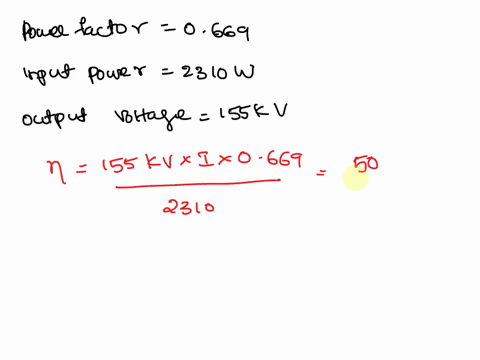 Power factor = 0.669
input power = 2310 W
output voltage = 155 KV
η = 155 KV × I × 0.669 = 50
2310